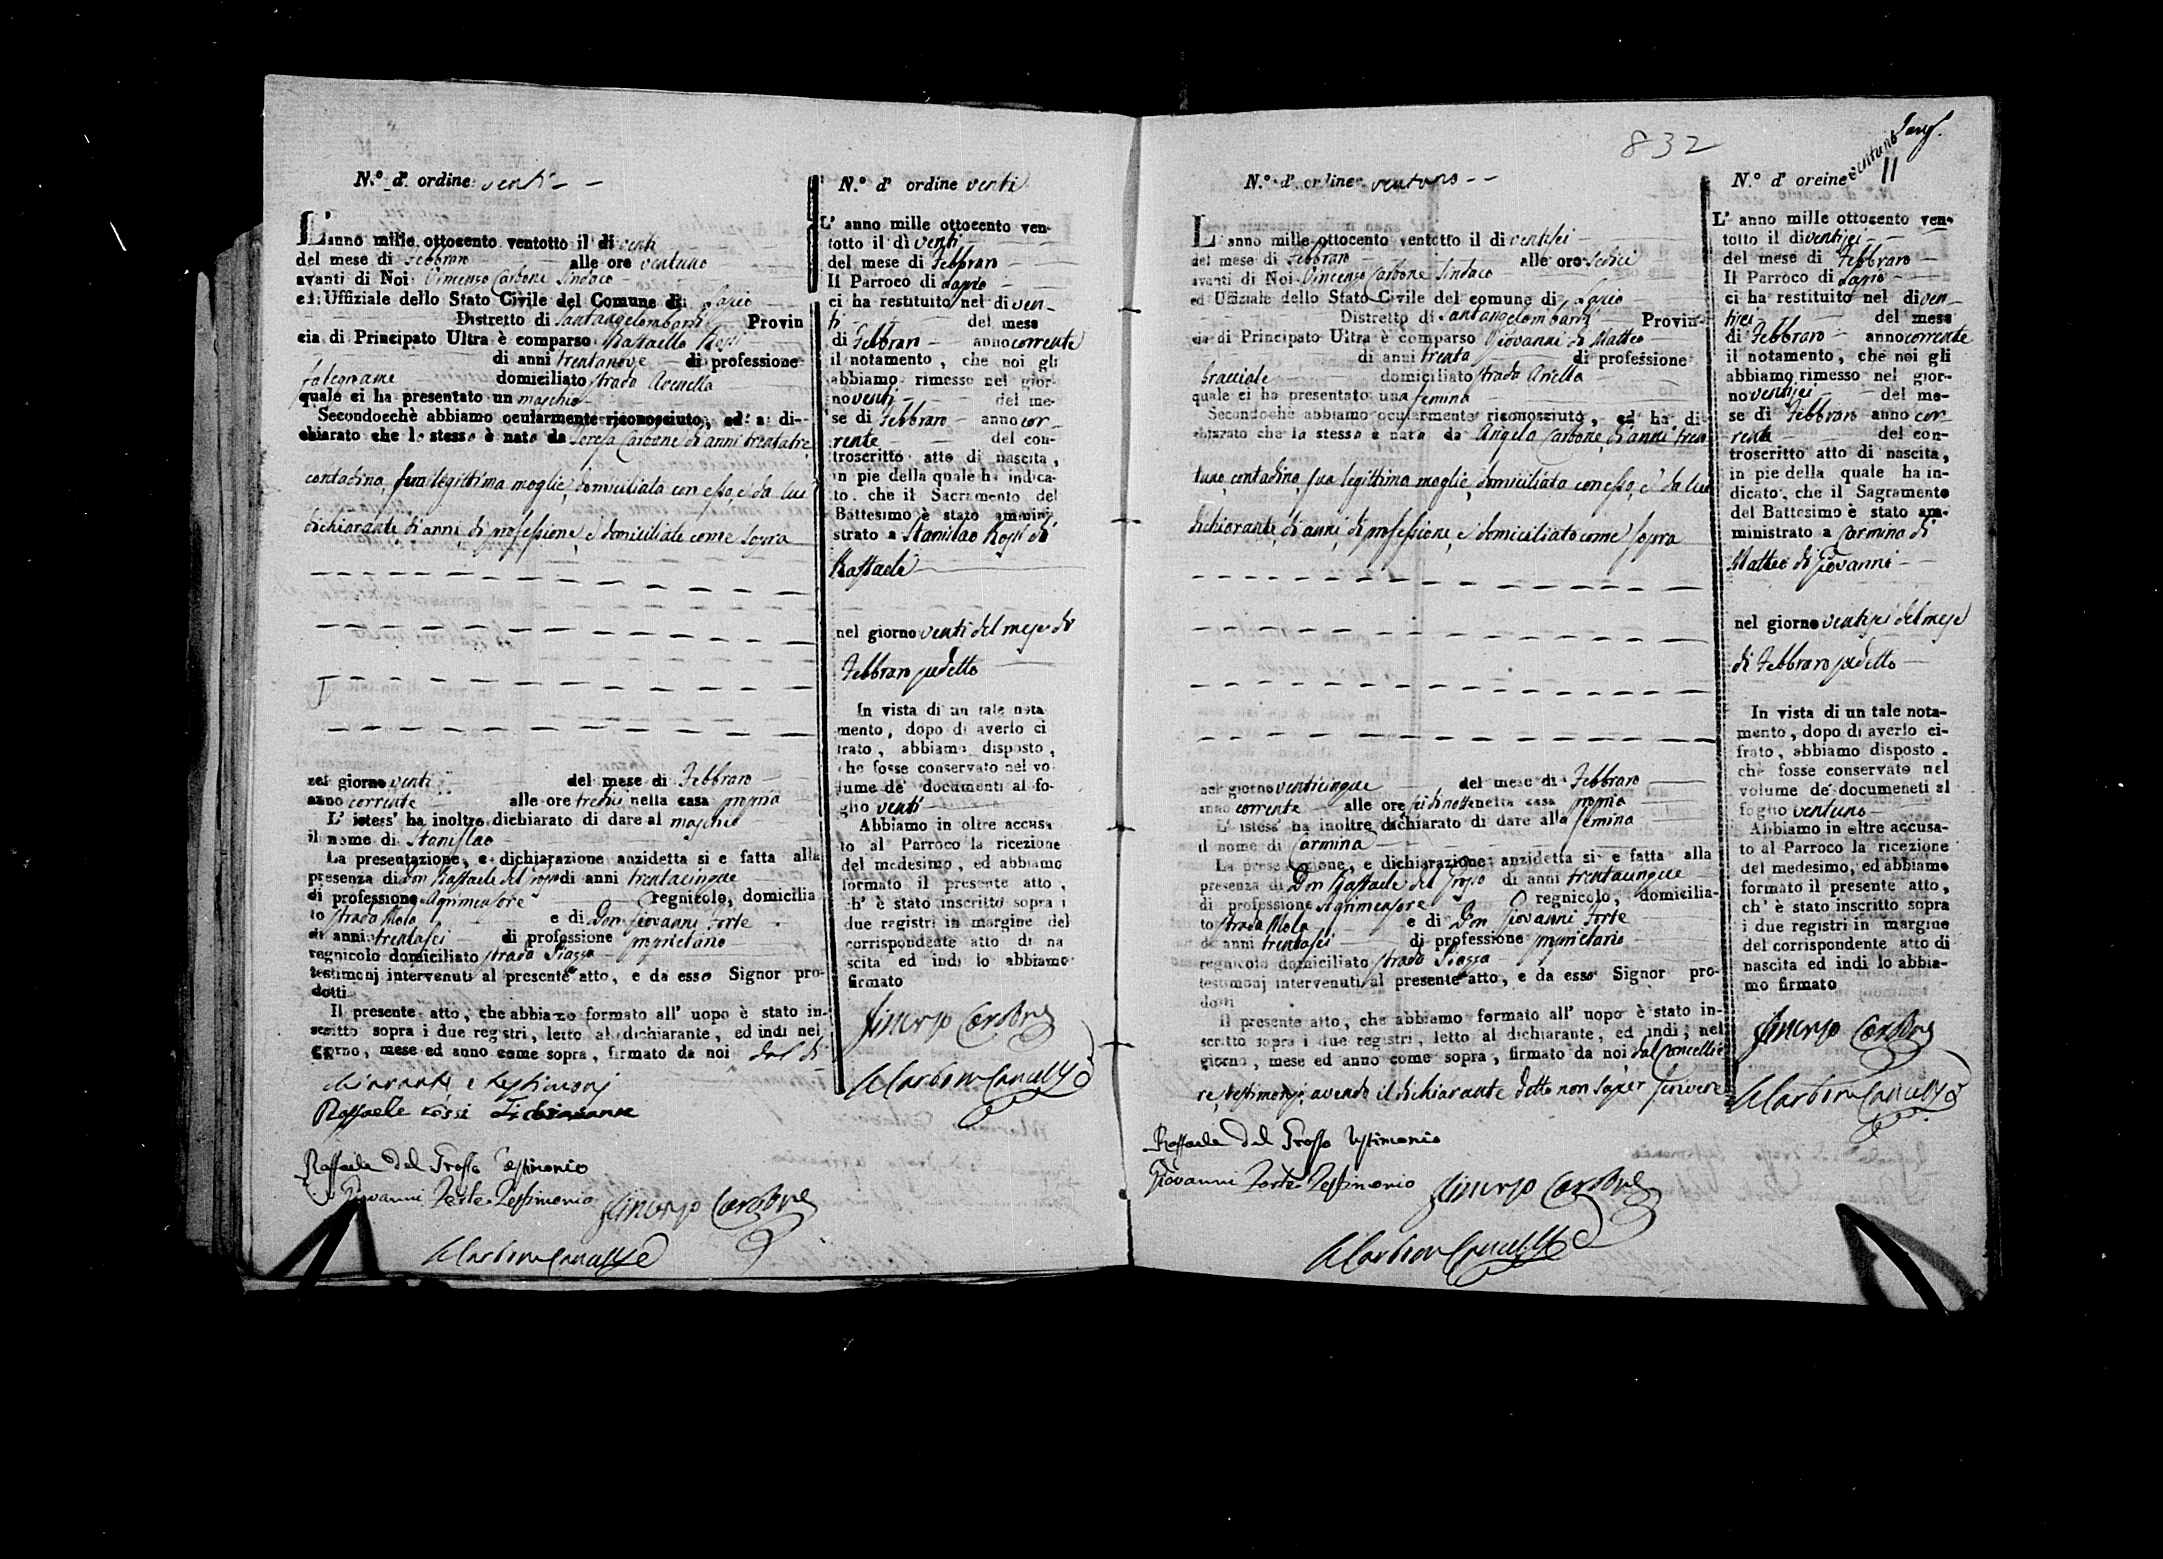 N.º d'. ordine venti
L'anno mille ottocento ventotto il dì venti
del mese di Febbraro alle ore ventuno
avanti di Noi Vincenzo Carbone Sindaco
ed Uffiziale dello Stato Civile del Comune di Lapio
Distretto di Santangelombardi Provin
cia di Principato Ultra è comparso Raffaello Rossi
di anni trentanove di professione
falegname domiciliato strada Arenella
quale ci ha presentato un maschio
Secondocchè abbiamo ocularmente riconosciuto, ed a di-
chiarato che lo stesso è nato da Teresa Carbone di anni trentatre,
contadina, sua legittima moglie, domiciliata con esso, e da lui
dichiarante, di anni, di professione, e domiciliato come sopra
nel giorno venti del mese di Febbraro
anno corrente alle ore tredici nella casa propria
L' istess' ha inoltre dichiarato di dare al maschio
il nome di Stanislao
La presentazione, e dichiarazione anzidetta si e fatta alla
presenza di Don Raffaele del Grosso di anni trentacinque
di professione Agrimensore regnicolo, domicilia
to strada Mola e di Don Giovanni Forte
di anni trentasei di professione proprietario
regnicolo domiciliato strada Piazza
testimonj intervenuti al presente atto, e da esso Signor pro-
dotti
Il presente atto, che abbiamo formato all' uopo è stato in-
scritto sopra i due registri, letto al dichiarante, ed indi nel
giorno, mese ed anno come sopra, firmato da noi dal di
chiarante, e testimonj
Raffaele Rossi Dichiarante
Raffaele del Grosso Testimonio
Giovanni Forte Testimonio Vincenzo Carbone
N.º d' ordine venti
L' anno mille ottocento ven-
totto il dì venti
del mese di Febbraro
Il Parroco di Lapio
ci ha restituito nel di ven-
ti del mese
di Febbraro anno corrente
il notamento, che noi gli
abbiamo rimesso nel gior
no venti del me-
se di Febbraro anno cor-
rente del con-
troscritto atto di nascita,
in pie della quale ha indica-
to che il Sacramento del
Battesimo è stato ammini
strato a Stanislao Rossi di
Raffaele
nel giorno venti del mese di
Febbraro sudetto
In vista di un tale nota
mento, dopo di averlo ci
frato, abbiamo disposto,
che fosse conservato nel vo
lume de' documenti al fo-
glio venti
Abbiamo in oltre accusa
to al Parroco la ricezione
del medesimo, ed abbiamo
formato il presente atto,
ch' è stato inscritto sopra i
due registri in margine del
corrispondente atto di na
scita ed indi lo abbiamo
firmato
Vincenzo Carbone
832
11
N.º d'. ordine ventuno
L'anno mille ottocento ventotto il di ventisei
del mese di Febbraro alle ore sedici
avanti di Noi Vincenzo Carbone Sindaco
ed Uffiziale dello Stato Civile del comune di Lapio
Distretto di Santangelombardi Provin-
cia di Principato Ultra è comparso Giovanni di Matteo
di anni trenta di professione
bracciale domiciliato strada Ariella
quale ci ha presentato una femina
Secondochè abbiamo ocularmente riconosciuto, ed ha di
chiarato che la stessa è nata da Angela Carbone, di anni tren
tuno, contadina, sua legittima moglie, domiciliata con esso, e da lui
dichiarante, di anni, di professione, e domiciliato come sopra
nel giorno venticinque del mese di Febbraro
anno corrente alle ore sei di notte nella casa propria
L' istess' ha inoltre dichiarato di dare alla femina
il nome di Carmina
La presentazione, e dichiarazione anzidetta si e fatta alla
presenza di Don Raffaele del Grosso di anni trentacinque
di professione Agrimensore regnicolo, domicilia-
to strada Mola e di Don Giovanni Forte
di anni trentasei di professione proprietario
regnicolo domiciliato strada Piazza
testimonj intervenuti al presente atto, e da esso Signor pro-
dotti
Il presente atto, che abbiamo formato all' uopo è stato in-
scritto sopra i due registri, letto al dichiarante, ed indi, nel
giorno, mese ed anno come sopra, firmato da noi dal Cancellie
re, testimonj, avendo il dichiarante detto non saper scrivere
Raffaele del Grosso Testimonio
Giovanni Forte Testimonio Vincenzo Carbone
N.º d' oreine ventuno
L' anno mille ottocento ven-
totto il di ventisei
del mese di Febbraro
Il Parroco di Lapio
ci ha restituito nel di ven-
tisei del mese
di Febbraro anno corrente
il notamento, che noi gli
abbiamo rimesso nel gior-
no ventisei del me-
se di Febbraro anno cor-
rente del con-
troscritto atto di nascita,
in pie della quale ha in-
dicato, che il Sagramento
del Battesimo è stato am-
ministrato a Carmina di
Matteo di Giovanni
nel giorno ventisei del mese
di Febbraro sudetto
In vista di un tale nota-
mento, dopo di averlo ci-
frato, abbiamo disposto,
che fosse conservato nel
volume de' documeneti al
foglio ventuno
Abbiamo in oltre accusa-
to al Parroco la ricezione
del medesimo, ed abbiamo
formato il presente atto,
ch' è stato inscritto sopra
i due registri in margine
del corrispondente atto di
nascita ed indi lo abbia-
mo firmato
Vincenzo Carbone